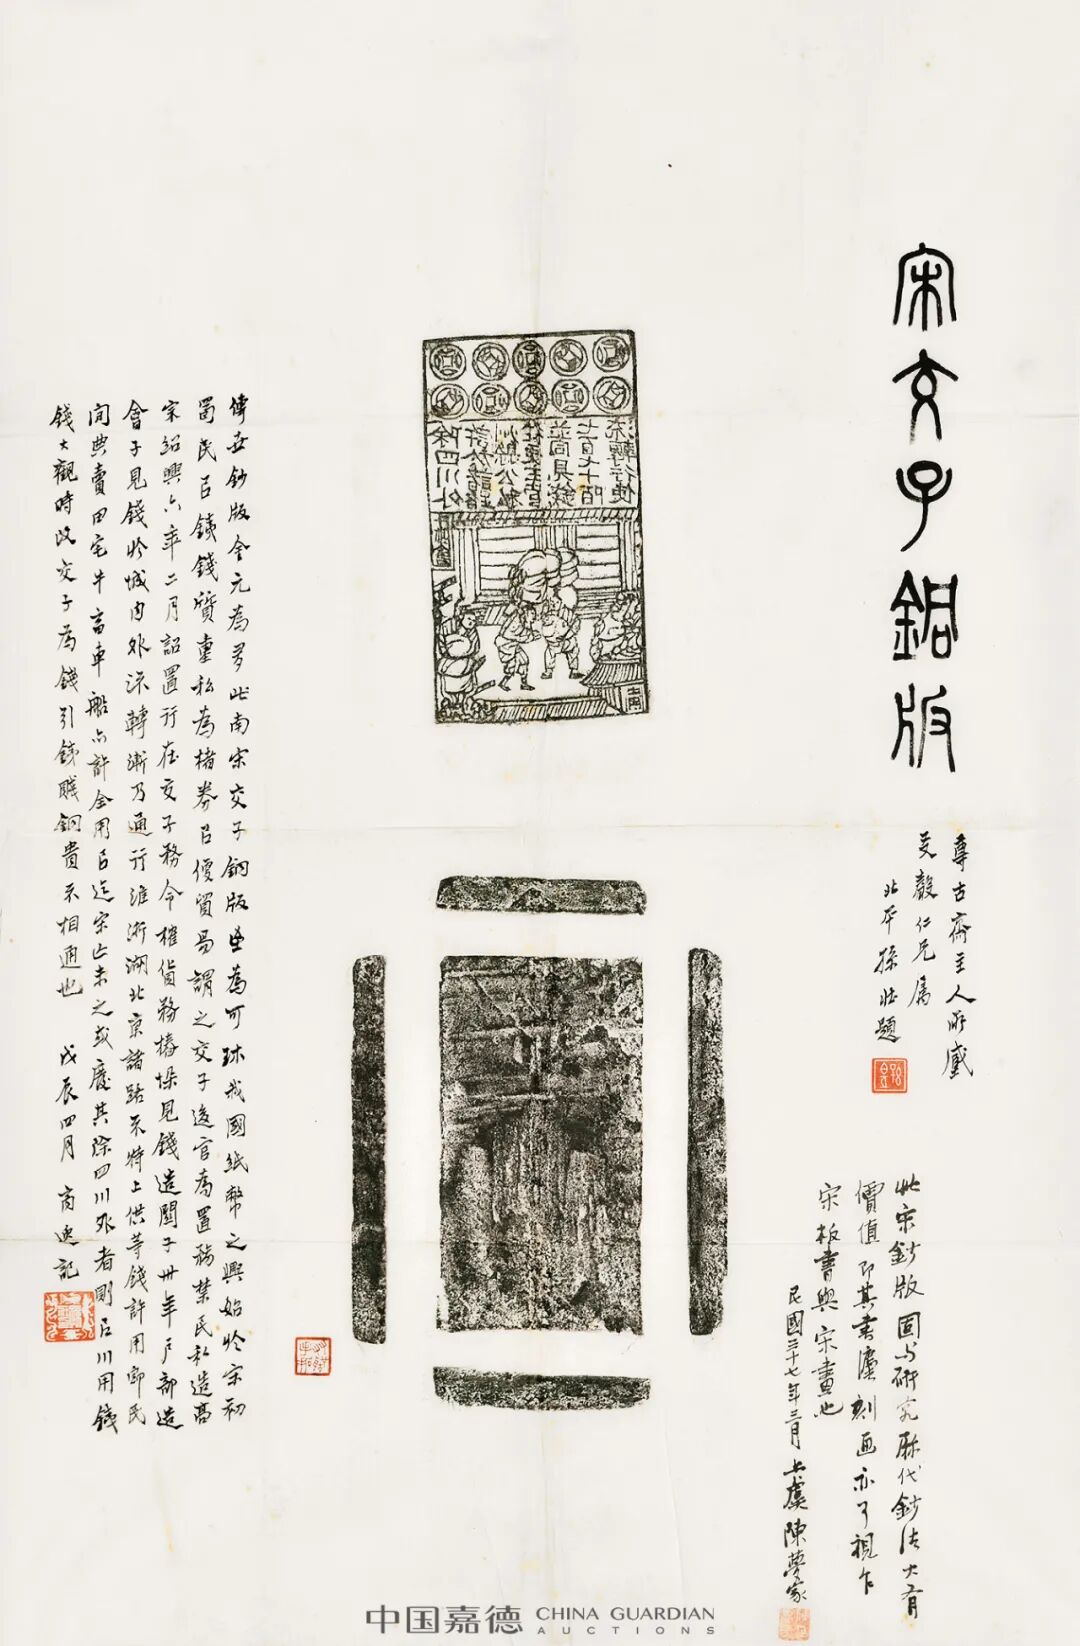 宋交子銅版
尊古齋主人所藏
仁兄属
北平孫壯題
此宋鈔版固与研究歷代鈔法大有
價值即其書体刻画亦可視乍
宋板書與宋畫也
民國三十七年三月上虞陳夢家
除四川外
許於諸路
州縣公私
從便主管
並同見錢
七百七十陌
流轉行使
傳世鈔版金元為多此南宋交子銅版至為可珎我國紙幣之興始於宋初
蜀民㠯鐵錢質重私為楮券㠯便貿易謂之交子後官為置務禁民私造高
宗紹興六年二月詔置行在交子務令榷貨務樁垛見錢造關子卅年户部造
會子見錢於城内外流轉漸乃通行淮浙湖北京諸路不特上供等錢許用即民
間典賣田宅牛畜車船亦許全用㠯迄宋亡未之或廢其除四川外者則㠯川用鐵
錢大觀時改交子為錢引鐵賤銅貴不相通也 戊辰四月 商記
中国嘉德 CHINA GUARDIAN AUCTIONS